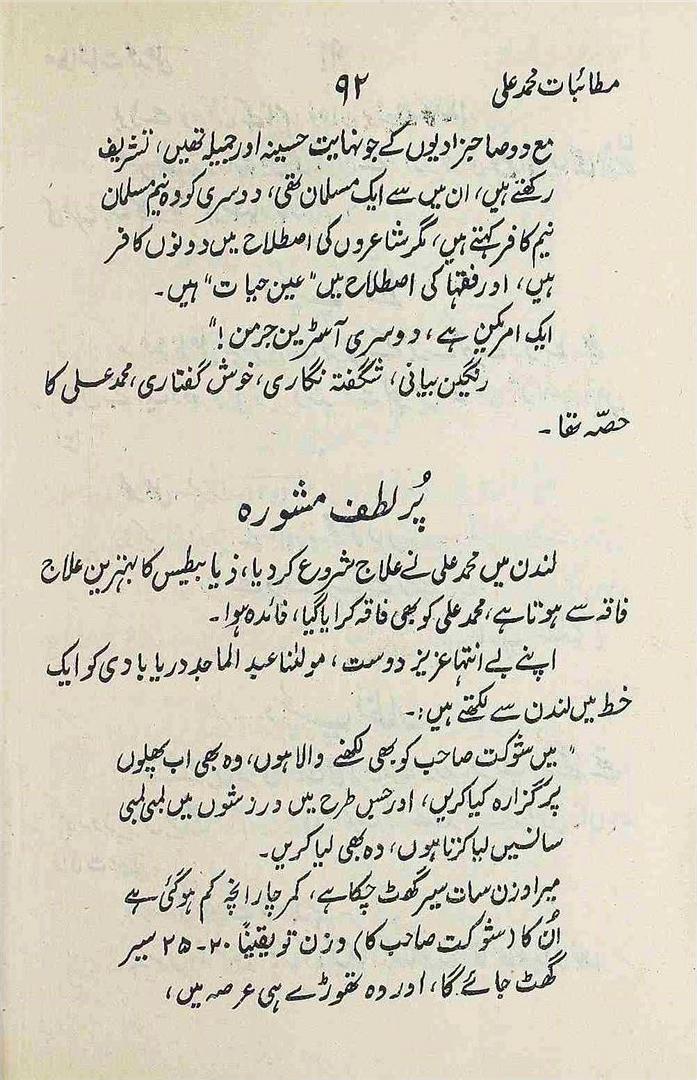 مطائبات محمد علی ۹۲
مع دو صاحبزادیوں کے جو نہایت حسینہ اور جمیلہ تھیں، تشریف
رکھتے ہیں، ان میں سے ایک مسلمان تھی، دوسری کو وہ نیم مسلمان
نیم کافر کہتے ہیں، مگر شاعروں کی اصطلاح میں دونوں کافر
ہیں، اور فقہا کی اصطلاح میں "عین حیات" ہیں۔
ایک امریکن ہے، دوسری آسٹرین جرمن!"
رنگین بیانی، شگفتہ نگاری، خوش گفتاری، محمد علی کا
حصّہ تھا۔
پُر لطف مشورہ
لندن میں محمد علی نے علاج شروع کر دیا، ذیابیطس کا بہترین علاج
فاقہ سے ہوتا ہے، محمد علی کو بھی فاقہ کرایا گیا، فائدہ ہوا۔
اپنے بے انتہا عزیز دوست، مولٰنا عبد الماجد دریابادی کو ایک
خط میں لندن سے لکھتے ہیں:۔
"میں شوکت صاحب کو بھی لکھنے والا ہوں، وہ بھی اب پھلوں
پر گزارہ کیا کریں، اور جس طرح میں ورزشوں میں لمبی لمبی
سانسیں لیا کرتا ہوں، وہ بھی لیا کریں۔
میرا وزن سات سیر گھٹ چکا ہے، کمر چار انچہ کم ہو گئی ہے
اُن کا (شوکت صاحب کا) وزن تو یقیناً ۲۰۔۲۵ سیر
گھٹ جائے گا، اور وہ تھوڑے ہی عرصہ میں،